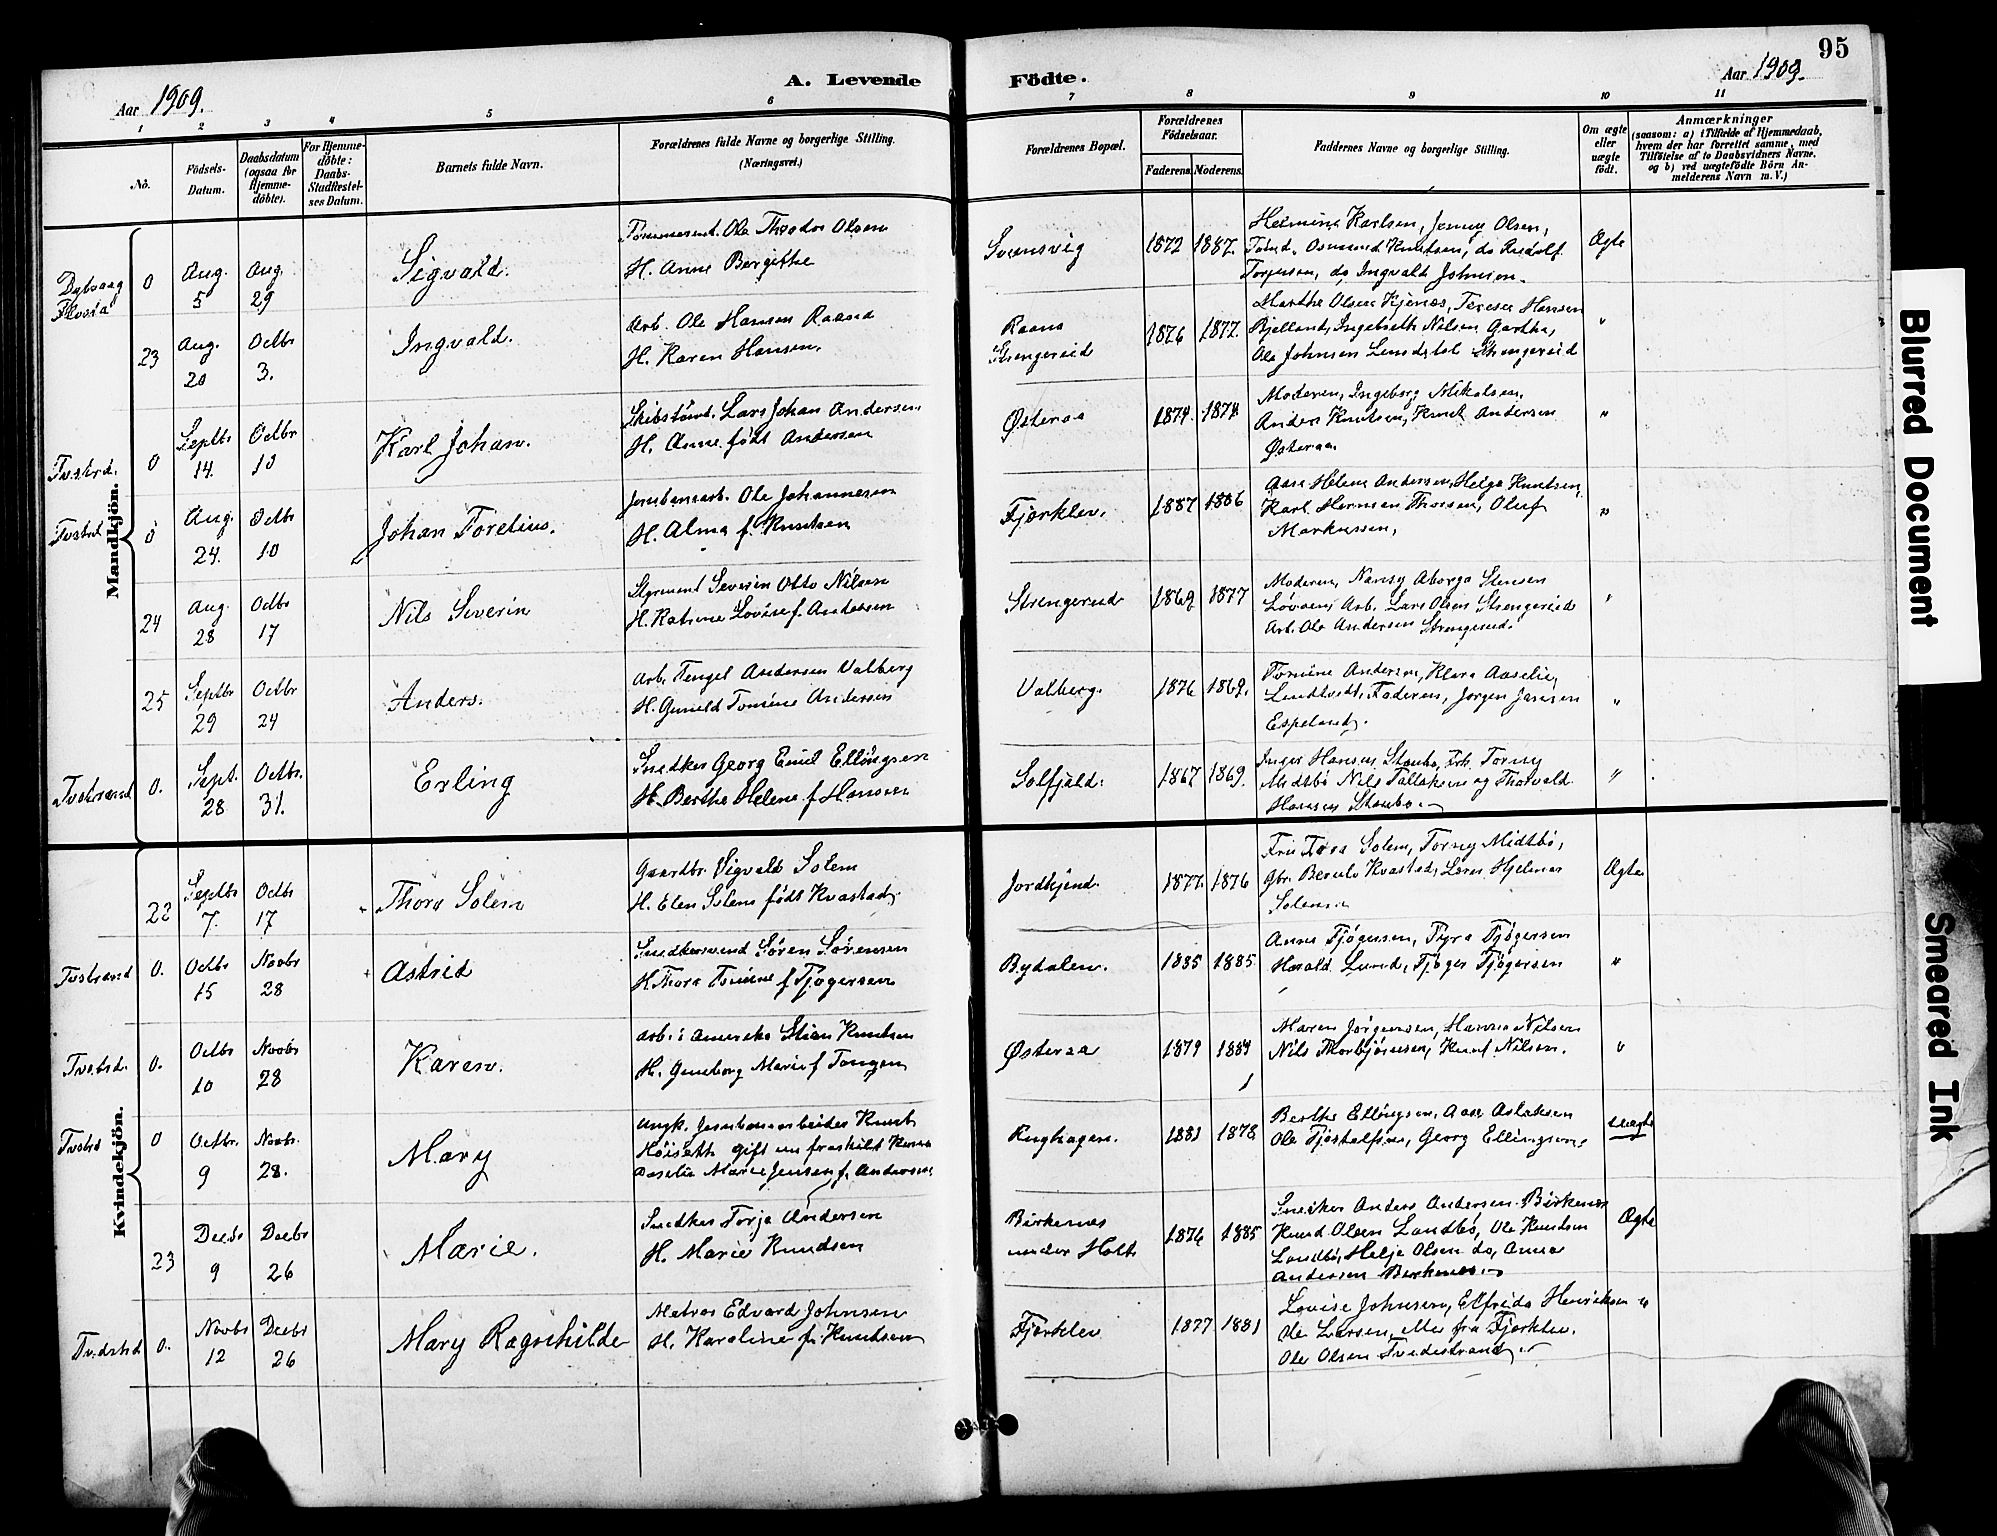 95
Aar 1909.
A. Levende Födte.
Aar 1909.
1 2 3 4 5 6 7 8 9 10 11
No.
Födsels-Datum.
Daabsdatum (ogsaa for Hjemme-döbte).
For Hjemme-döbte: Daabs-Stadfæstel-ses Datum.
Barnets fulde Navn.
Forældrenes fulde Navne og borgerlige Stilling. (Næringsvei.)
Forældrenes Bopæl.
Forældrenes Födselsaar.
Faderens. Moderens.
Faddernes Navne og borgerlige Stilling.
Om ægte eller uægte födt.
Anmærkninger
(saasom: a) i Tilfælde af Hjemmedaab, hvem der har forrettet samme, med Tilföielse af to Daabsvidners Navne, og b) ved uægtefödte Börn An-melderens Navn m. V.)
Mandkjön.
Dybvaag Flosta 0 Aug. 5 Aug 29 Sigvald.
Tømmermd. Ole Theodor Olsen
H. Anne Bergitte
Svensvig 1872 1887.
Helmine Karlsen, Jenny Olsen,
Osmund Knutsen, do Rudolf
Torjusen, do Ingvald Johnsen. Ægte
23 Aug. 20 Octbr 3. Ingvald.
Arb. Ole Hansen Raana
H. Karen Hansen.
Raana Strengereid 1876 1877.
Marthe Olsen Kjenes, Terese Hansen
Bjelland, Ingebreth Nilsen Gartha,
Ole Johnsen Lundedal Strengereid "
Tvstrd. 0 Septbr 14. Octbr 10 Karl Johan.
Skibstømd. Lars Johan Andersen
H. Anne født Andersen
Østeraa 1874. 1874.
Moderen, Ingeborg Nikolsen,
Anders Knutsen, Knut Andersen
Østeraa. "
Tvstrd 0 Aug. 24. Octbr 10 Johan Torelius.
Jernbanearb. Ole Johannesen
H. Alma f. Knutsen
Fjærklev. 1887 1886
Aase Helene Andersen, Helga Knutsen,
Karl Herman Thorsen, Oluf
Markussen, "
24 Aug. 28 Octbr 17 Nils Severin
Styrmand Severin Otto Nilsen
H. Katrine Lovise f. Andersen
Strengereid 1869 1877
Moderen, Nansy Stensen
Arb. Lars Olsen Strengereid
Arb. Ole Andersen Strengereid. "
25 Septbr 29 Octbr 24 Anders.
Arb. Tengel Andersen Valberg
H. Gunild Tomine Andersen
Valberg. 1876 1869.
Tomine Andersen, Klara Aaselie,
Faderen, Jørgen Jensen
Espeland. "
Tvstrand 0. Sept. 28 Octbr. 31. Erling
Snedker Georg Emil Ellingsen
H. Berthe Helene f. Hansen
Solfjeld. 1867 1869.
Inger Hansen Stambo, Torny
Midtbø Nils Tallaksen og Thorvald
Hansen Stambo. "
Kvindekjön.
22 Septbr 7. Octbr 17 Thora Solem
Gaardbr. Sigvald Solem
H. Elen Solem født Kvastad.
Jordkjend. 1877. 1876
Tora Solem, Torny Midtbø,
Gbr. Kvastad, Hjelmer
Solem Ægte
Tvstrand 0. Octbr 15 Novbr 28 Astrid
Snedkersvend Søren Sørensen
H. Thora Tomine f Tjøgersen
Bydalen. 1885 1885.
Anna Tjøgersen, Thyra Tjøgersen
Harald Lund, Tjøger Tjøgersen "
Tvstrd. 0. Octbr 10 Novbr 28 Karen.
Arb. i Amerika Stian Knutsen
H. Marie f Tangen
Østeraa 1879 1884
Maren Jørgensen, Hanna Nilsen
Nils Thorbjørnsen, Knut Nilsen. "
Tvstrd 0 Octbr. 9 Novbr. 28. Mary
Ungk. Jernbanearbeider Knut
Høiseth gift fraskilt Kona
Marie Jensen f. Andersen
Rughagen. 1881 1878
Berthe Ellingsen, Aase Aslaksen
Ole Georg Ellingsen, uægte
23 Decbr 9 Decbr 26 Marie.
Snedker Torje Andersen
H. Marie Knudsen
Birkenes under Holt 1876 1885
Snedker Anders Andersen Birkenes
Knud Olsen Landbø, Ole Knudsen
Landbø, Helje Olsen do, Anna
Andersen Birkenes. Ægte
Tvedstrd 0. Novbr 12 Decbr 26 Mary Ragnhilde
Matros Edvard Johnsen
H. Karoline f. Knutsen
Fjærklev 1877 1881
Lovise Johnsen, Elfrida Henriksen
Ole Larsen, Alle fra Fjærklev.
Ole Olsen Tvedestrand. "
Blurred Document
Smeared Ink